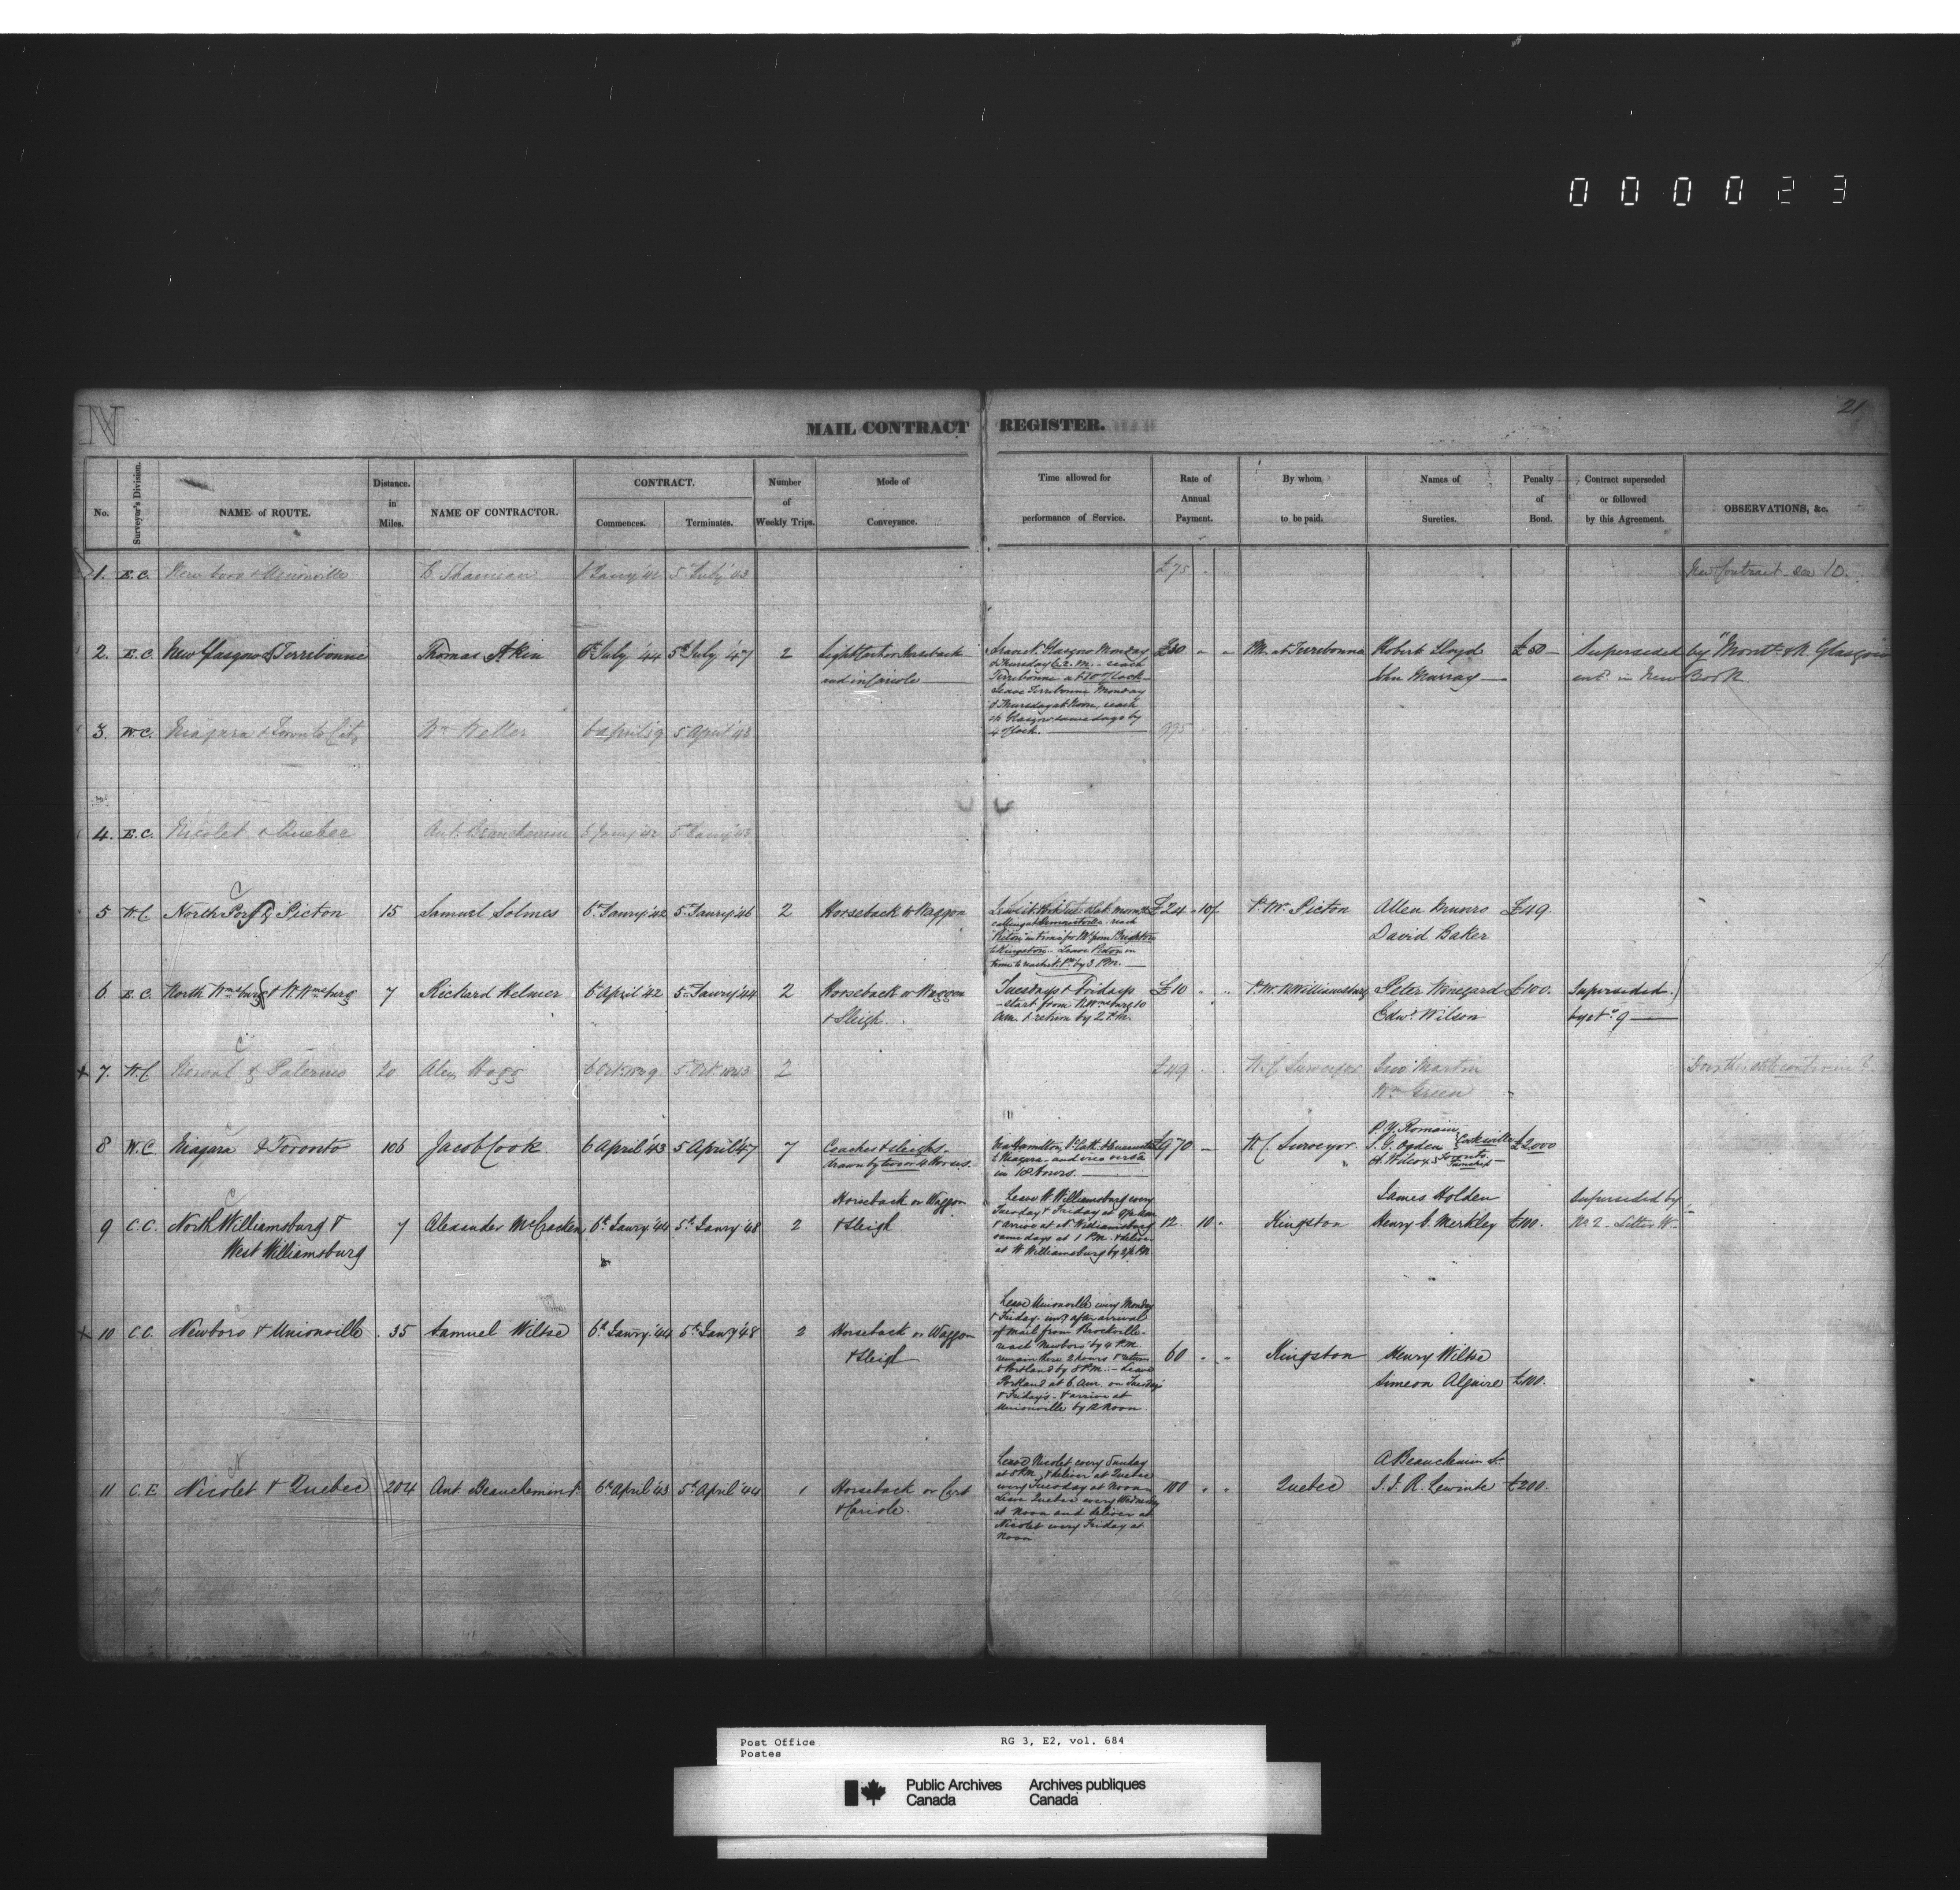 000023
N
21
MAIL CONTRACT REGISTER.
No.
Surveyor's Division.
NAME of ROUTE.
Distance. in Miles.
NAME OF CONTRACTOR.
CONTRACT.
Commences.
Terminates.
Number of Weekly Trips.
Mode of Conveyance.
Time allowed for performance of Service.
Rate of Annual Payment.
By whom to be paid.
Names of Sureties.
Penalty of Bond.
Contract superseded or followed by this Agreement.
OBSERVATIONS, &c.
1. E.C. Newboro & Unionville 5 July '43 £75 New Contract see 10.
2. E.C. New Glasgow & Terrebonne Thomas Atkin 6th July '44 5th July '47 2 Light Cart or Horseback and in Cariole
Leave N. Glasgow Monday
& Thursday 6 a.m. - reach
Terrebonne at 10 o'Clock
Leave Terrebonne Monday
& Thursday at Noon, reach
N. Glasgow same days by
4 o'Clock.
P.M. at Terrebonne Robert Lloyd £50 Superseded by "Montl. & N. Glasgow
John Murray entd. in New Book
3. W.C. Niagara & Toronto City Wm Weller 6 April '39 5 April '43
4. E.C. Nicolet & Quebec Ant. Beauchemin 6 Jany '42 5 Jany '43
5 W.C North Port & Picton 15 Samuel Solmes 6th Janry '42 5th Janry '46 2 Horseback or Waggon
£24 10/ P.M. Picton Allen Munro £49.
David Baker
time to reach N. Pt. by 3 P.M.
6 E.C. North Wmsburg & W. Wmsburg 7 Richard Helmer 6 April '42 5 Janry '44 2 Horseback or Waggon
& Sleigh.
Tuesdays & Fridays
start from N. Wmsburg 10
a.m. & return by 2 P.M.
£10 P.M. W Williamsburg Peter Winegard £100. Superseded
Edwd. Wilson by No. 9
7. W.C Norval & Palermo 20 Alex Hogg 6 Oct. 1839 5 Oct. 1843 2 £49 W.C Surveyor Jno Martin
Wm Green
8 W.C Niagara & Toronto 106 Jacob Cook. 6 April '43 5 April '47 7 Coaches & Sleighs
drawn by two or 4 Horses.
Via Hamilton, St. Cath. & Queenston
to Niagara - and vice versa
in 18 hours.
£970 W.C. Surveyor
S. G. Ogden Cooksville £2000
A. Wilcox Toronto Township
Horseback or Waggon
Leave W Williamsburg every
James Holden Superseded by
9 C.C. North Williamsburg & 7 Alexander McCracken 6th Janry '44 5th Janry '48 2 & Sleigh
West Williamsburg
Tuesday & Friday at
& arrive at N. Williamsburg
same days at 1 P.M. & deliver
at W Williamsburg by
12. 10 Kingston Henry C. Merkley £100. No 2 - Letter W.
10 C.C. Newboro & Unionville 35 Samuel Wiltse 6th Janry '44 5th Janry '48 2 Horseback or Waggon
& Sleigh
Leave Unionville every Monday
& Friday after arrival
of Mail from Brockville
reach Newboro by 4 P.M.
remain there 2 hours & return
to Portland by 8 P.M. - Leave
Portland at 6 a.m. on Tuesday
& Friday's - & arrive at
Unionville by Noon
60 Kingston Henry Wiltse
Simeon Alguire £100.
11 C.E Nicolet & Quebec 204 Ant Beauchemin 6th April '43 5th April '44 1 Horseback or Cart
& Cariole.
Leave Nicolet every Sunday
at 8 P.M. & deliver at Quebec
every Tuesday at Noon
Leave Quebec every Wednesday
at Noon and deliver at
Nicolet every Friday at
Noon
100 Quebec A Beauchemin Sr.
£200.
Post Office
Postes
RG 3, E2, vol. 684
Public Archives
Canada
Archives publiques
Canada